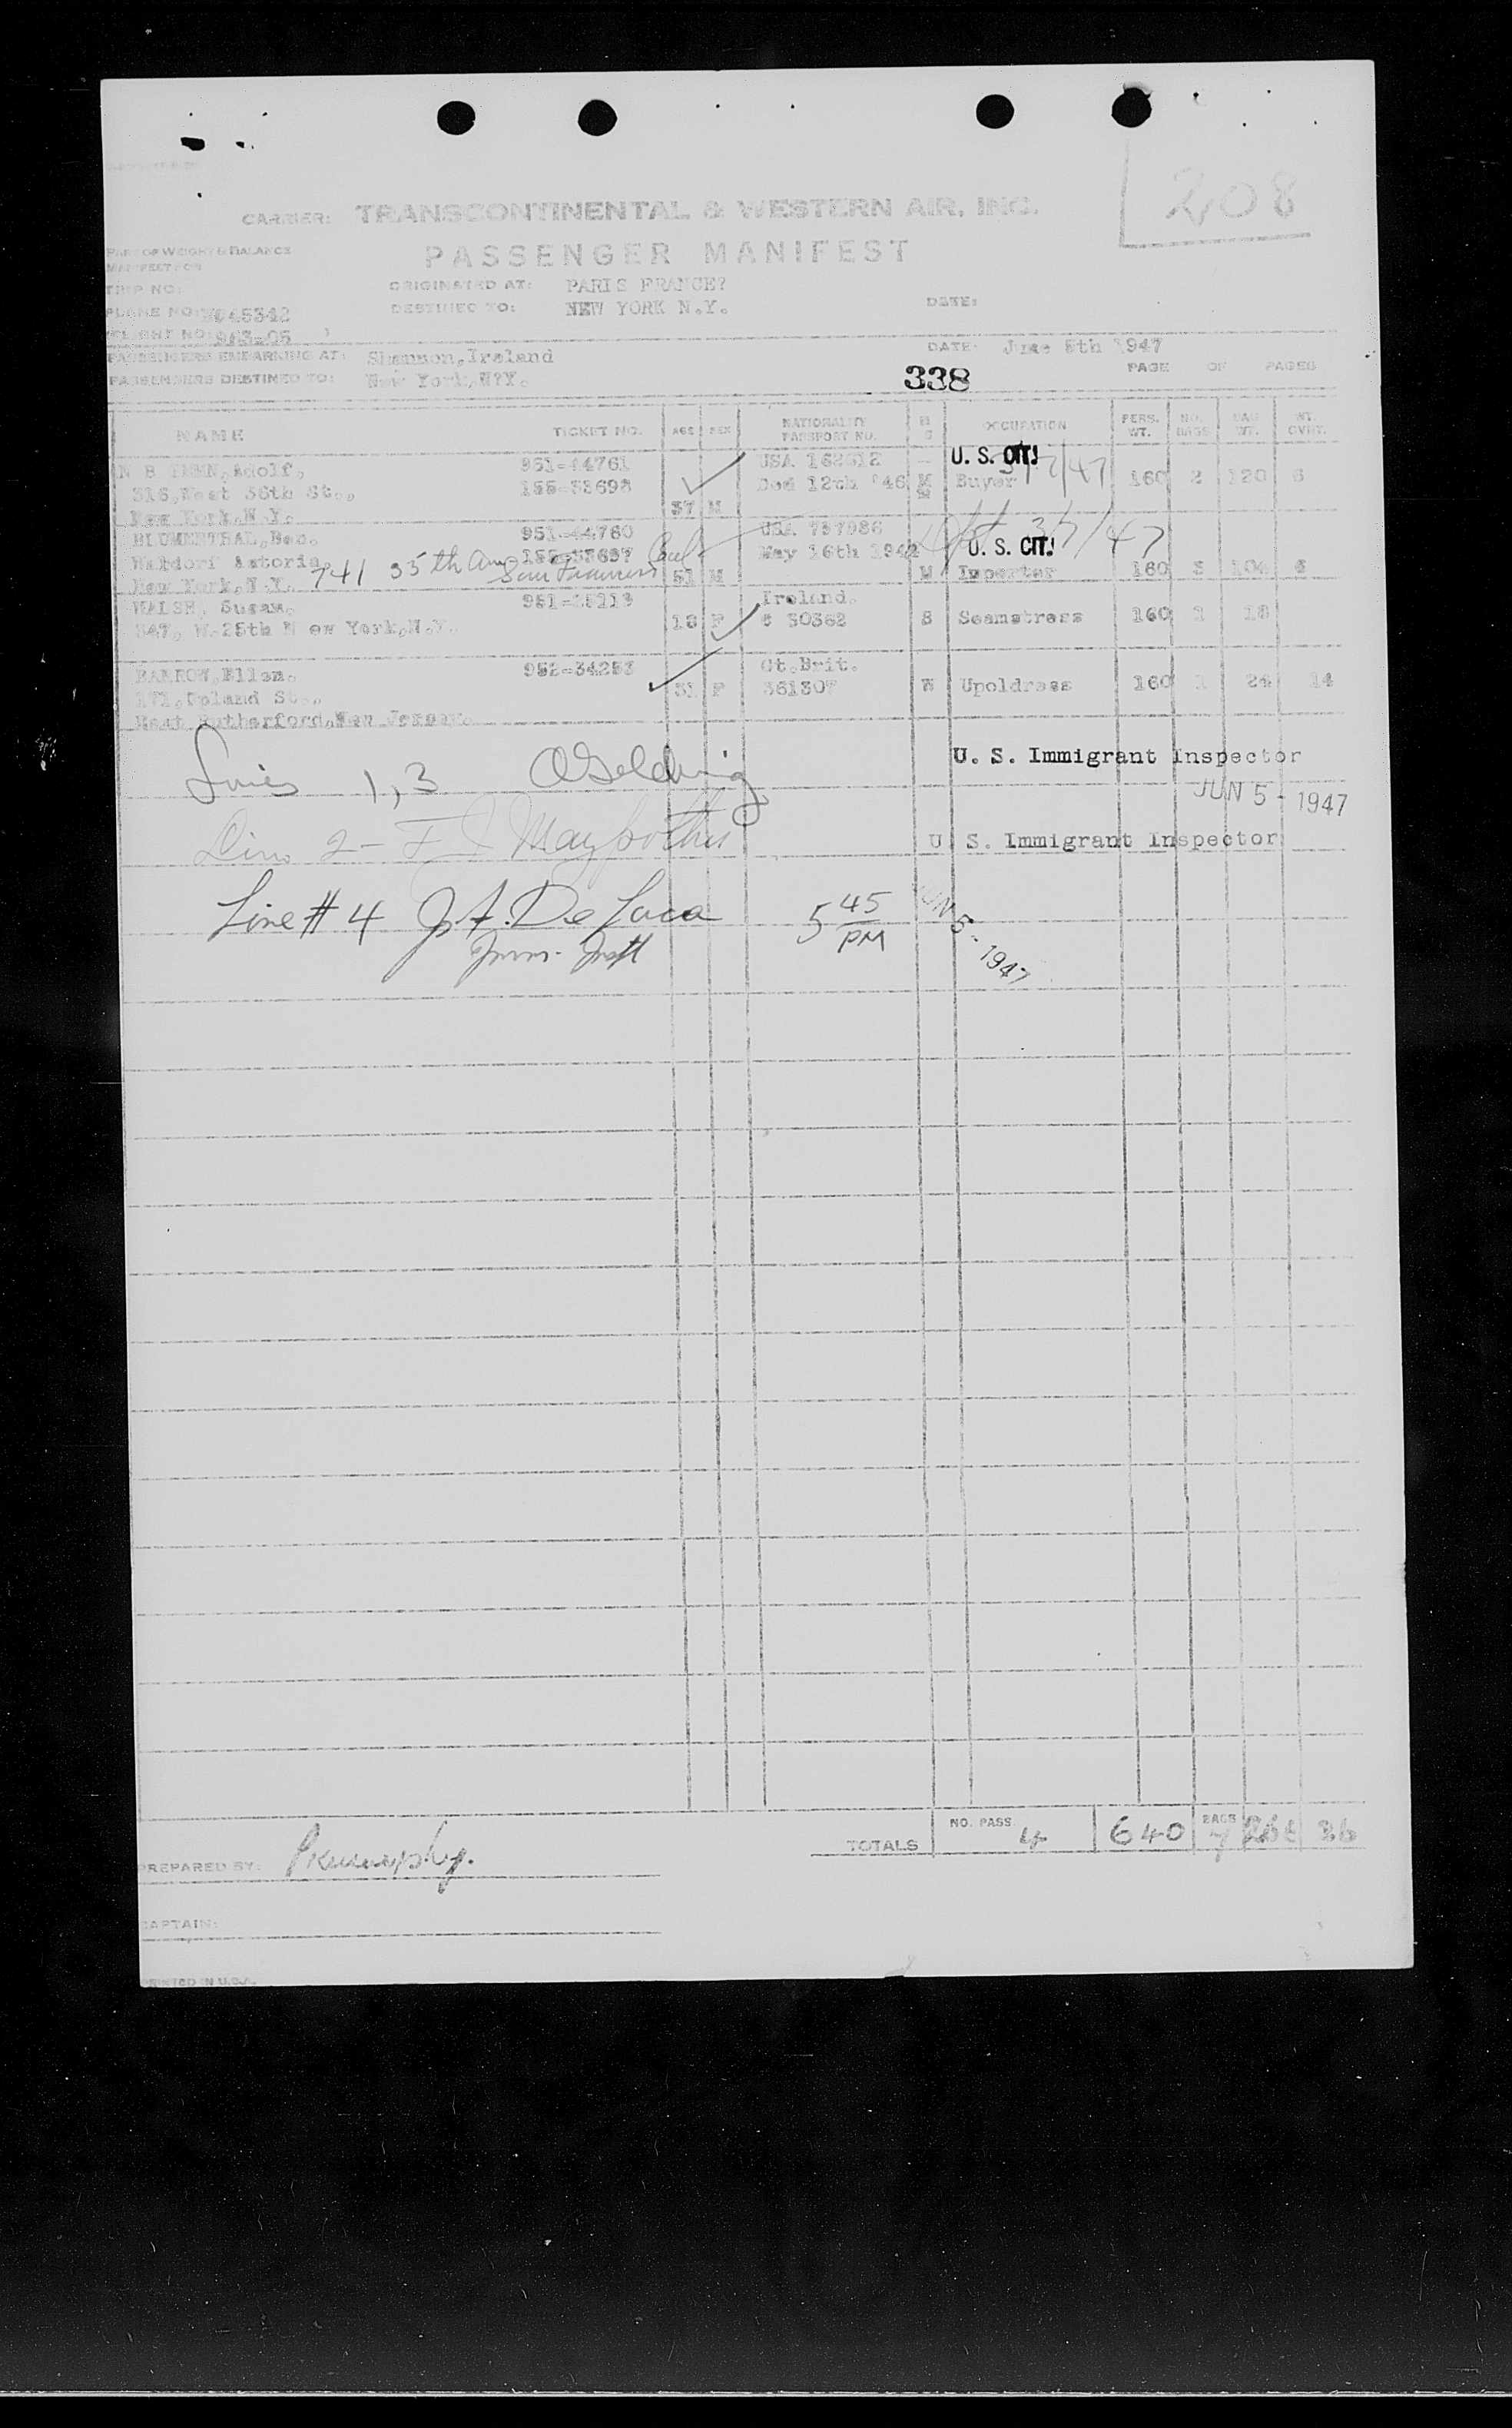 208
CARRIER: TRANSCONTINENTAL & WESTERN AIR, INC.
PASSENGER MANIFEST
PART OF WEIGHT & BALANCE
MANIFEST FOR
TRIP NO:
ORIGINATED AT: PARIS FRANCE?
PLANE NO: 45342
DESTINED TO: NEW YORK N.Y.
DATE:
FLIGHT NO: 963-05
PASSENGERS EMBARKING AT: Shannon,Ireland
DATE: June 5th 1947
PASSENGERS DESTINED TO: New York,N?Y.
338
PAGE OF PAGES
NAME TICKET NO. AGE SEX NATIONALITY PASSPORT NO. M S OCCUPATION PERS. WT. NO. BAGS BAG WT. WT. OVHT.
Adolf, 951-44761 USA U. S. CIT!
316,West 36th St., 155-33698 Dec 12th '46 M Buyer 3/7/47 160 2 120 6
New York,N.Y. 37 M
BLUMENTHAL,Ben. 951-44760 USA 797986 3/7/47
Waldorf Astoria, 155-33697 May 16th 1942 U. S. CIT!
741 35th Ave San Francisco Cal
New York,N.Y. 51 M M Importer 160 3 104 6
WALSH, Susan. Ireland.
347, W.25th N ew York,N.Y. 18 F 30362 S Seamstress 160 1 18
BARROW,Ellen. 952-34253 Gt.Brit.
171,Upland St., 31 F 361307 W Upoldress 160 1 24 14
East Rutherford,New Jersey.
Lines 1,3 Golding U. S. Immigrant Inspector
JUN 5 - 1947
Line 2- U S. Immigrant Inspector
Line # 4 J.A. De Luca 5 45 PM JUN 5 - 1947
Imm. Insp
TOTALS NO. PASS 4 640 BAGS 7 26
PREPARED BY:
CAPTAIN:
PRINTED IN U.S.A.